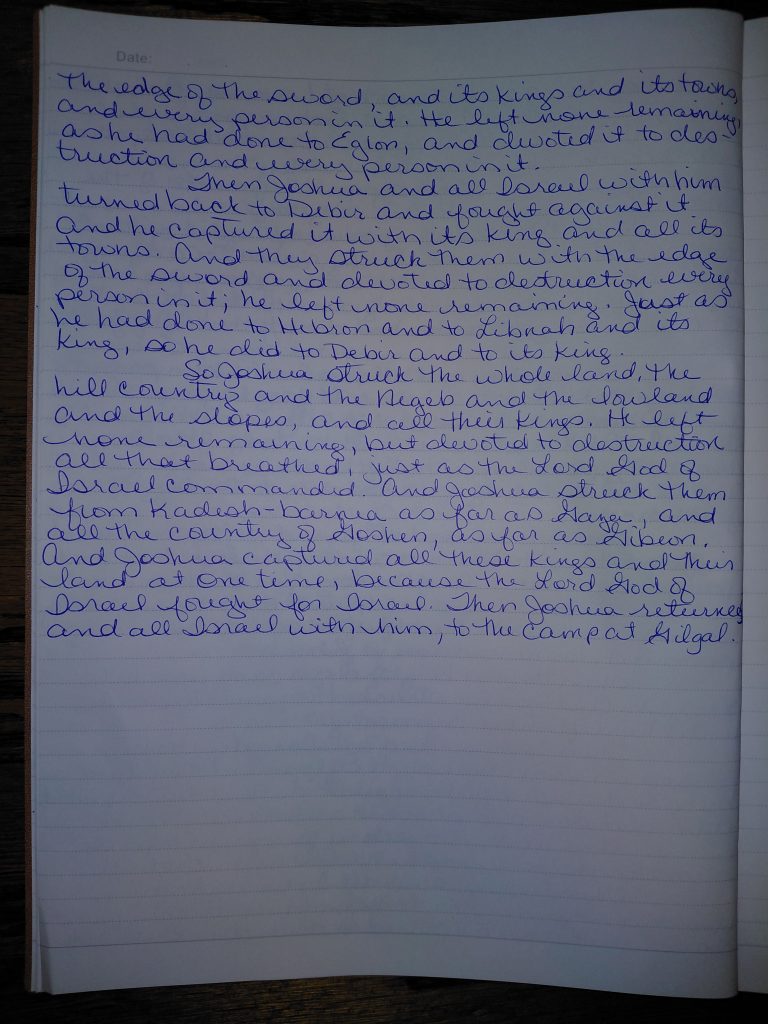 Date:
the edge of the sword, and its kings and its towns,
and every person in it. He left none remaining,
as he had done to Eglon, and devoted it to des-
truction and every person in it.
Then Joshua and all Israel with him
turned back to Debir and fought against it
and he captured it with its king and all its
towns. And they struck them with the edge
of the sword and devoted to destruction every
person in it; he left none remaining. Just as
he had done to Hebron and to Libnah and its
king, so he did to Debir and to its king.
So Joshua struck the whole land, the
hill country and the Negeb and the lowland
and the slopes, and all their kings. He left
none remaining, but devoted to destruction
all that breathed, just as the Lord God of
Israel commanded. And Joshua struck them
from Kadesh-barnea as far as Gaza, and
all the country of Goshen, as far as Gibeon.
And Joshua captured all these kings and their
land at one time, because the Lord God of
Israel fought for Israel. Then Joshua returned
and all Israel with him, to the camp at Gilgal.